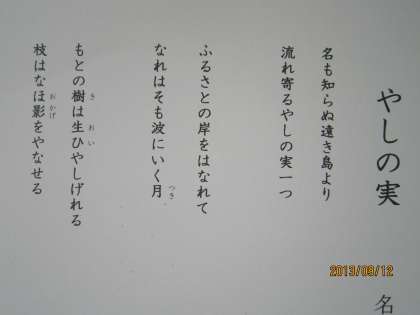 やしの実
名も知らぬ遠き島より
流れ寄るやしの実一つ
ふるさとの岸をはなれて
なれはそも波にいく月
つき
もとの樹は生ひやしげれる
き
おい
枝はなほ影をやなせる
おかげ
名
2013/09/12